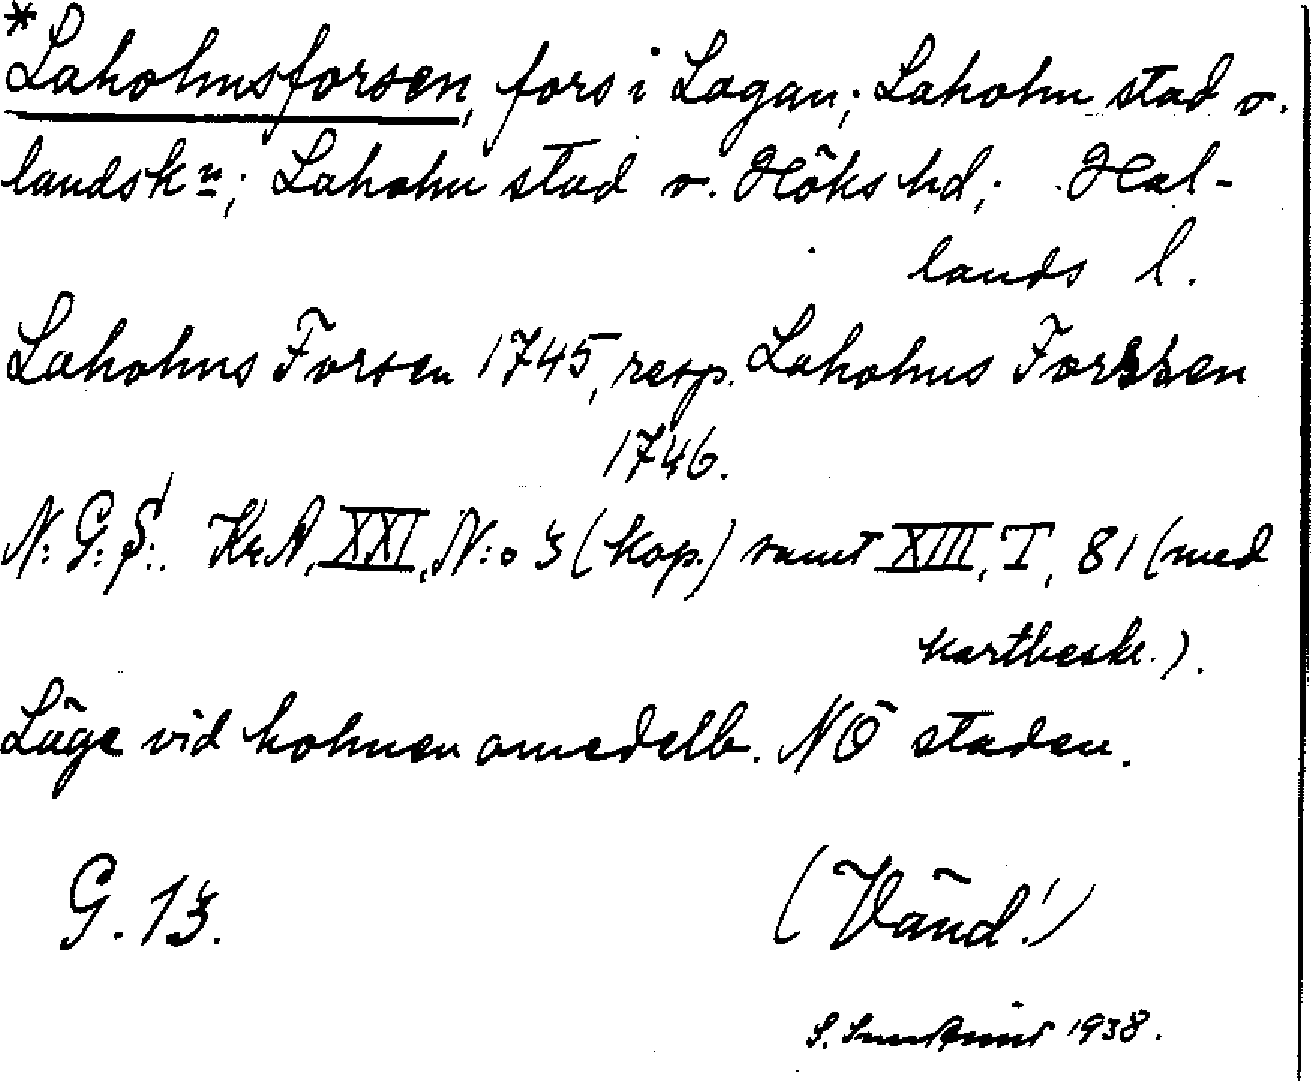 *Laholmsforsen, fors i Lagan; Laholm stad o.
landskn; Laholm stad o. Höks hd; Hal-
lands l.
Laholms Forsen 1745, resp. Laholms Forssen
1746.
N: G: S:. Kr.A. XXI, N:o 3 (kop.) samt XIII, T, 81 (med
kartbeskr.).
Läge vid holmen omedelb. NÖ staden.
G. 13.
(Vänd!)
S. 1938.